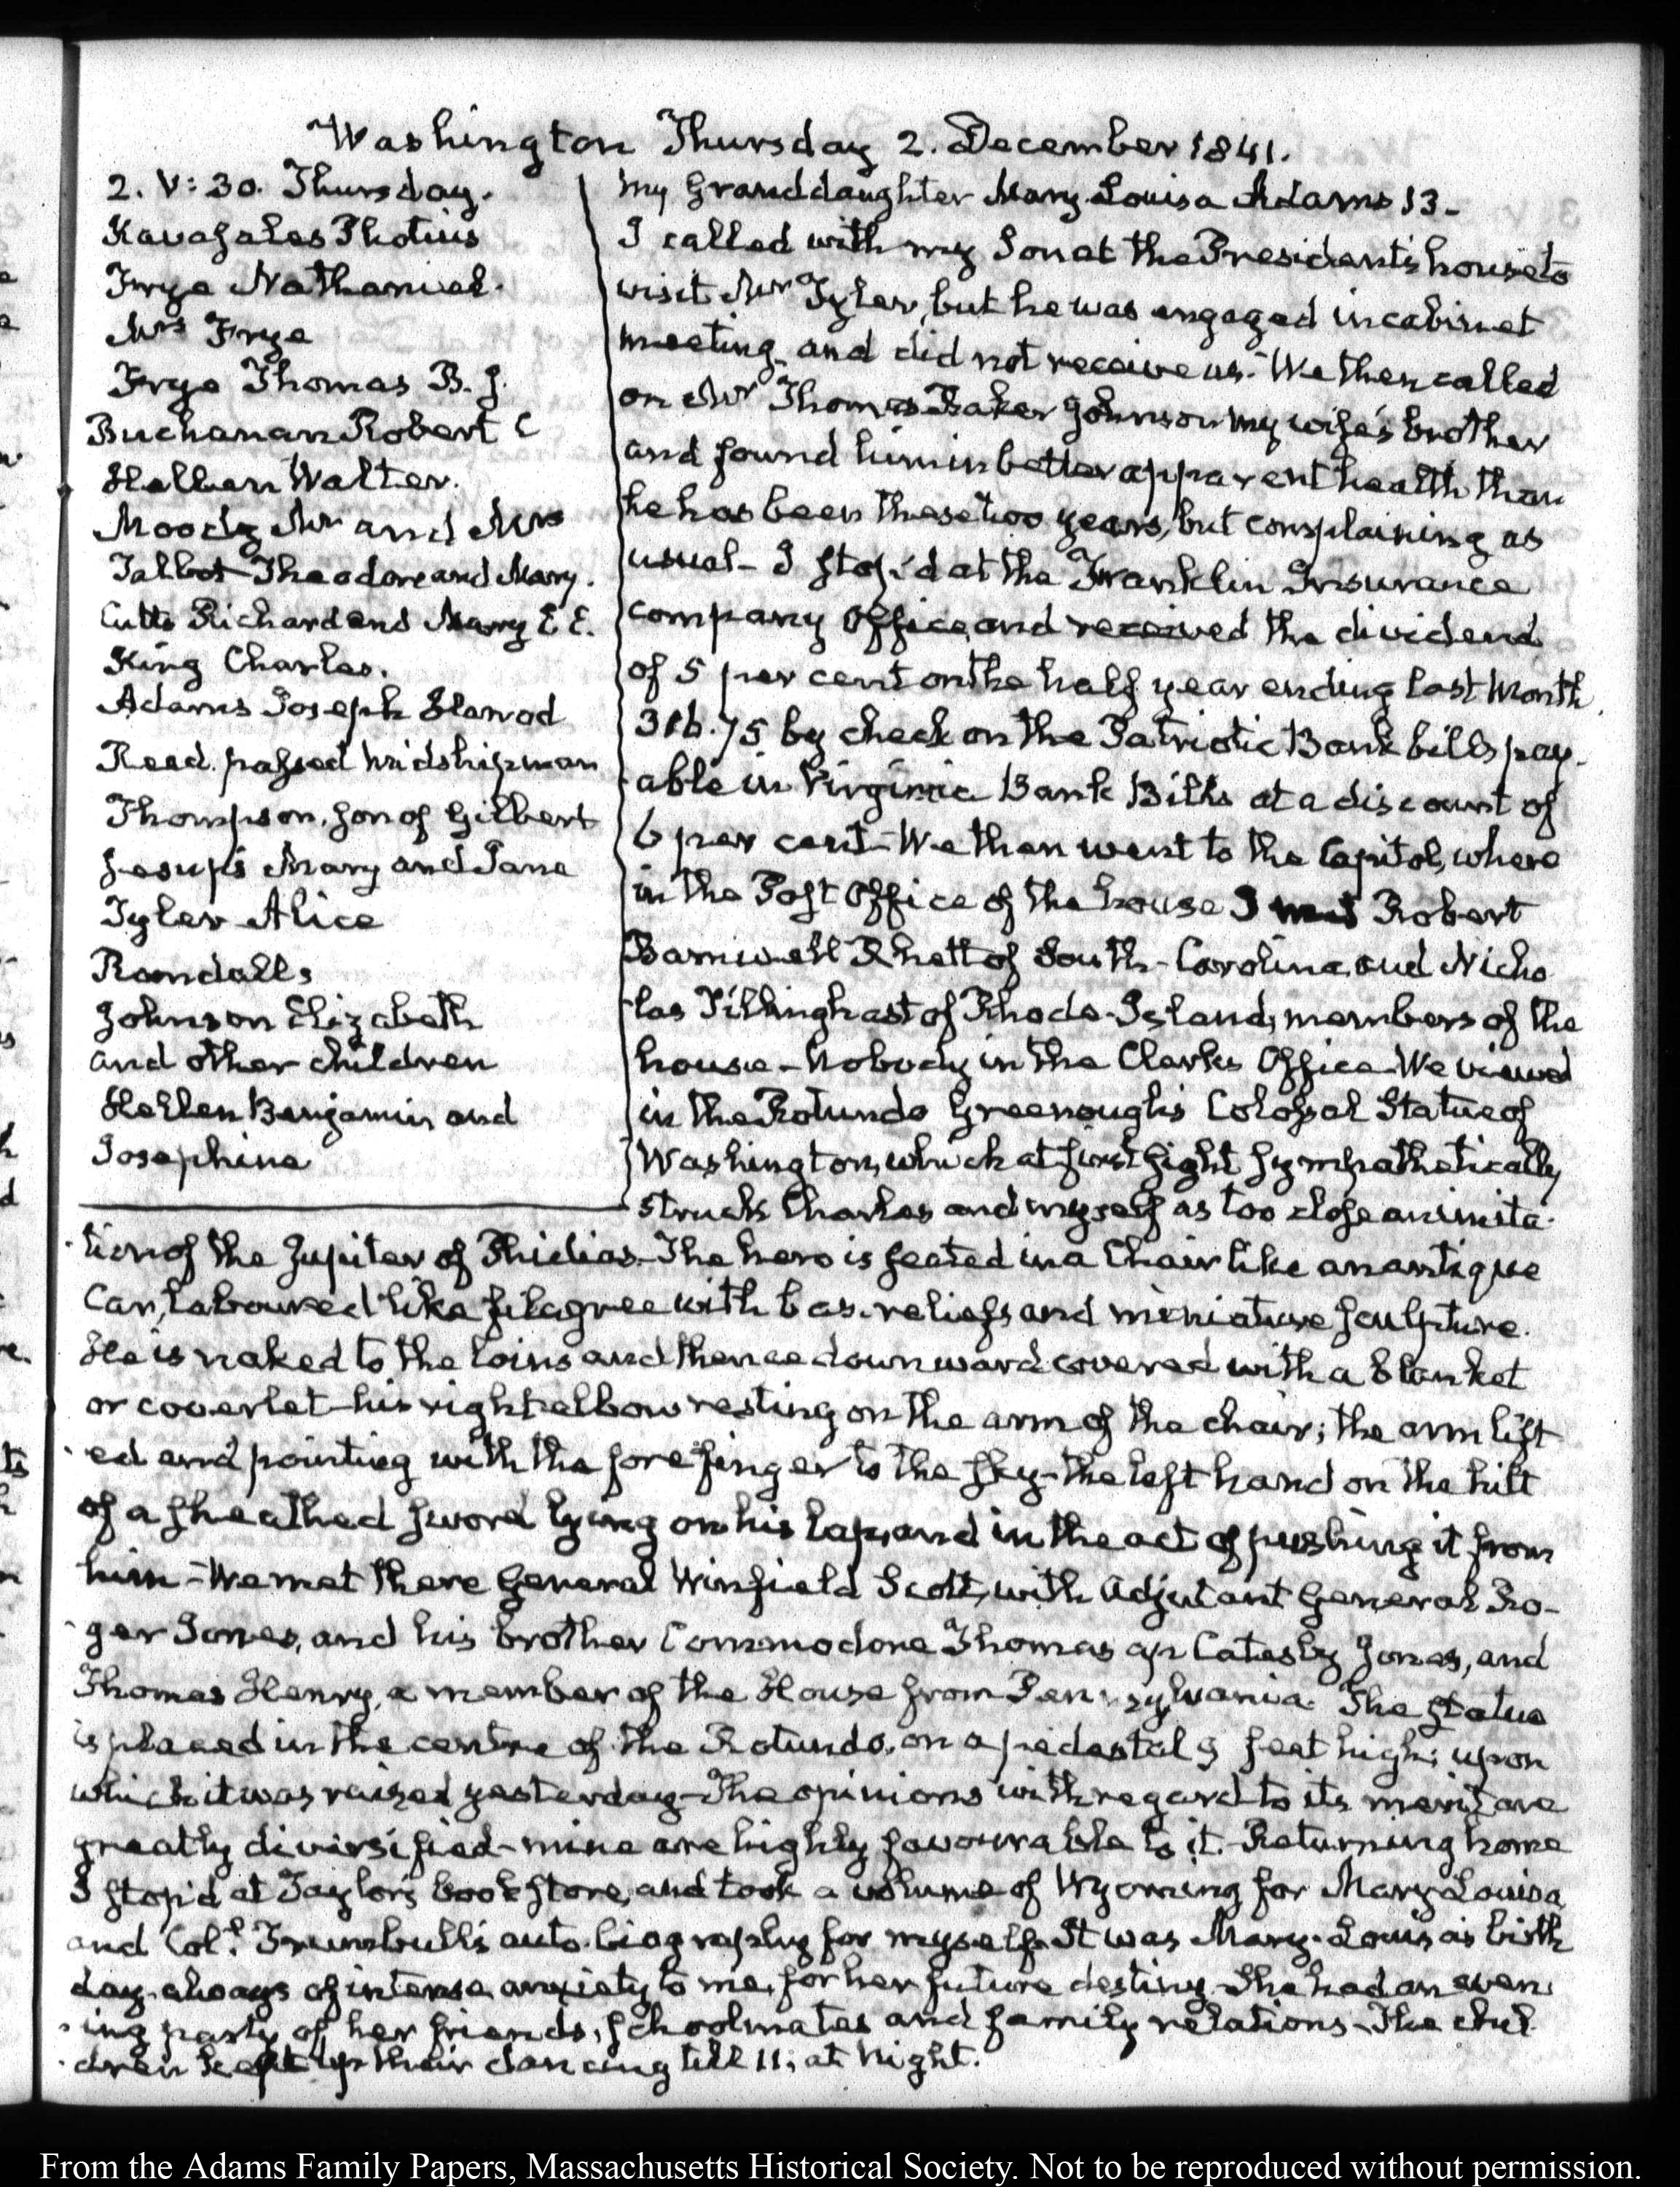 Washington Thursday 2. December 1841.
2. V: 30. Thursday.
Kavasales Photius
Frye Nathaniel.
Mrs Frye
Frye Thomas B. J.
Buchanan Robert C
Hellen Walter.
Moody Mr and Mrs
Talbot Theodore and Mary.
Cutts Richard and Mary E E.
King Charles.
Adams Joseph Harrod
Read. passed midshipman
Thompson, son of Gilbert
Jesup's Mary and Jane
Tyler Alice
Randalls
Johnson Elizabeth
and other children
Hellen Benjamin and
Josephine
My Granddaughter Mary Louisa Adams 13-
I called with my Son at the President's house to
visit Mr Tyler, but he was engaged in cabinet
meeting and did not receive us. We then called
on Mr Thomas Baker Johnson my wife's brother
and found him in better apparent health than
he has been these two years, but complaining as
usual- I stop'd at the Franklin Insurance
company Office, and received the dividend
of 5 per cent on the half year ending last Month
316.75 by check on the Patriotic Bank bills pay-
able in Virginia Bank Bills at a discount of
6 per cent- We then went to the Capitol, where
in the Post Office of the house I met Robert
Barnwell Rhett of South-Carolina, and Nicho
las Tillinghast of Rhode-Island, members of the
house- Nobody in the Clerk's Office- We viewed
in the Rotundo Greenough's Colossal Statue of
Washington, which at first sight sympathetically
struck Charles and myself as too close an imita-
tion of the Jupiter of Phidias- The hero is seated in a Chair like an antique
Car, laboured like filagree with bas-reliefs and miniature sculpture.
He is naked to the loins and thence downward covered with a blanket
or coverlet- his right elbow resting on the arm of the chair; the arm lift
ed and pointing with the fore finger to the sky- the left hand on the hilt
of a sheathed sword lying on his lap, and in the act of pushing it from
him- We met there General Winfield Scott, with Adjutant General Ro-
ger Jones, and his brother Commodore Thomas ap Catesby Jones, and
Thomas Henry, a member of the House from Pennsylvania. The statue
is placed in the centre of the Rotundo, on a pedestal 9 feet high; upon
which it was raised yesterday- The opinions with regard to its merit are
greatly diversified- mine are highly favourable to it. Returning home
I stop'd at Taylor's book store, and took a volume of Wyoming for Mary Louisa
and Coll. Trumbull's auto-biography for myself. It was Mary-Louisa's birth
day- always of intense anxiety to me, for her future destiny- She had an even-
ing party of her friends, schoolmates and family relations- The chil
dren kept up their dancing till 11; at Night.
From the Adams Family Papers, Massachusetts Historical Society. Not to be reproduced without permission.